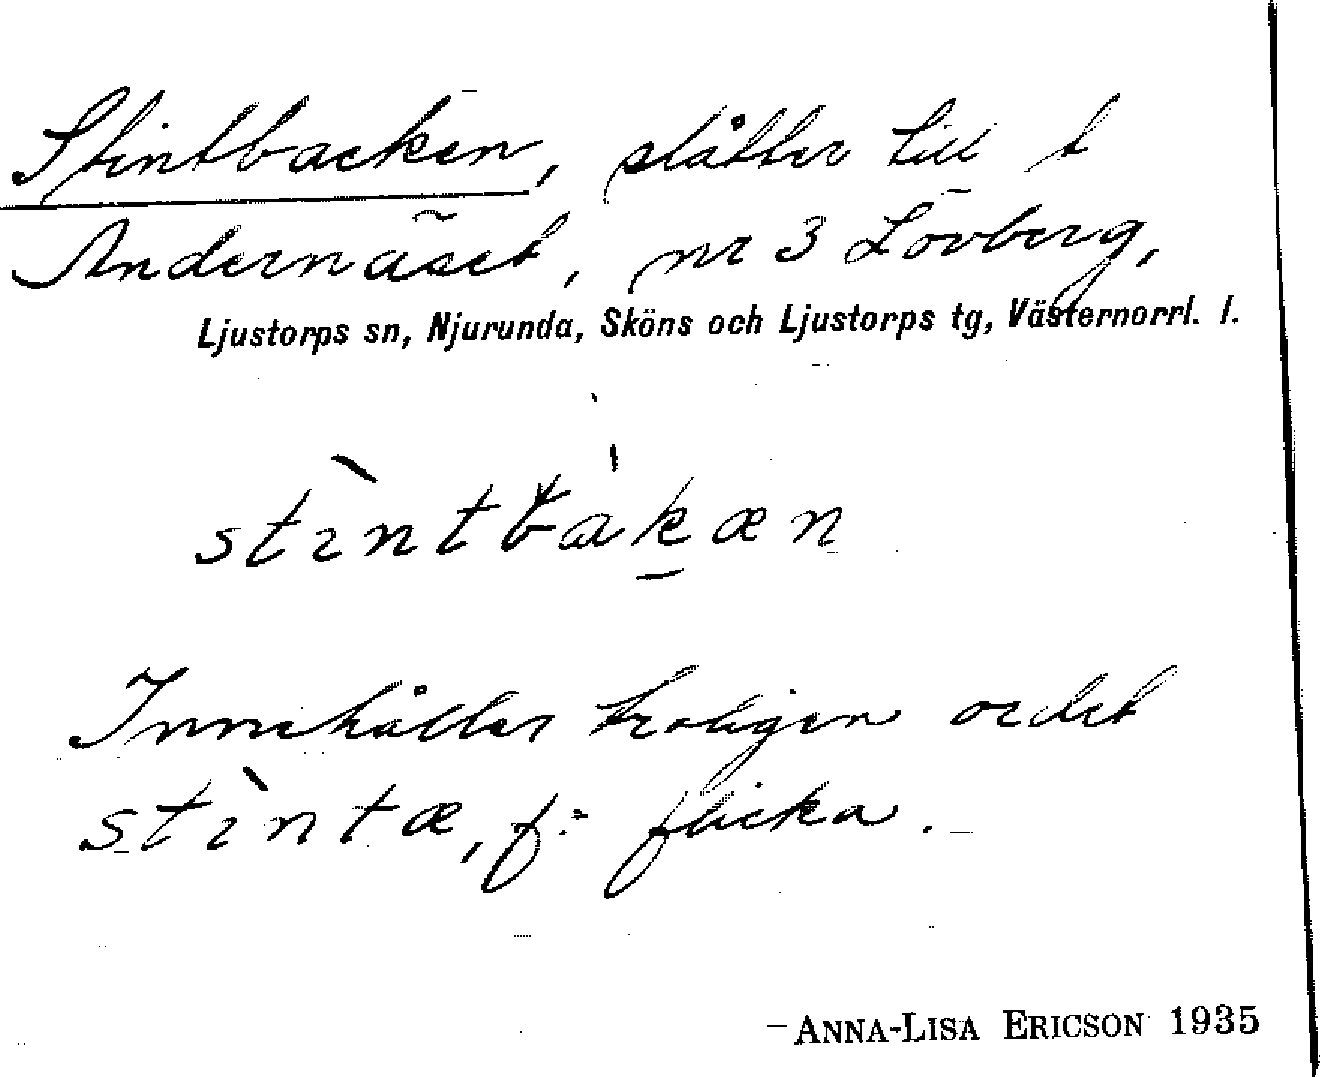 Stintbacken, slåtter till t
Andernäset, nr 3 Lövberg,
Ljustorps sn, Njurunda, Sköns och Ljustorps tg, Västernorrl. l.
stìntbakæn
Innehåller troligen ordet
stìntæ, f: flicka.
ANNA-LISA ERICSON 1935